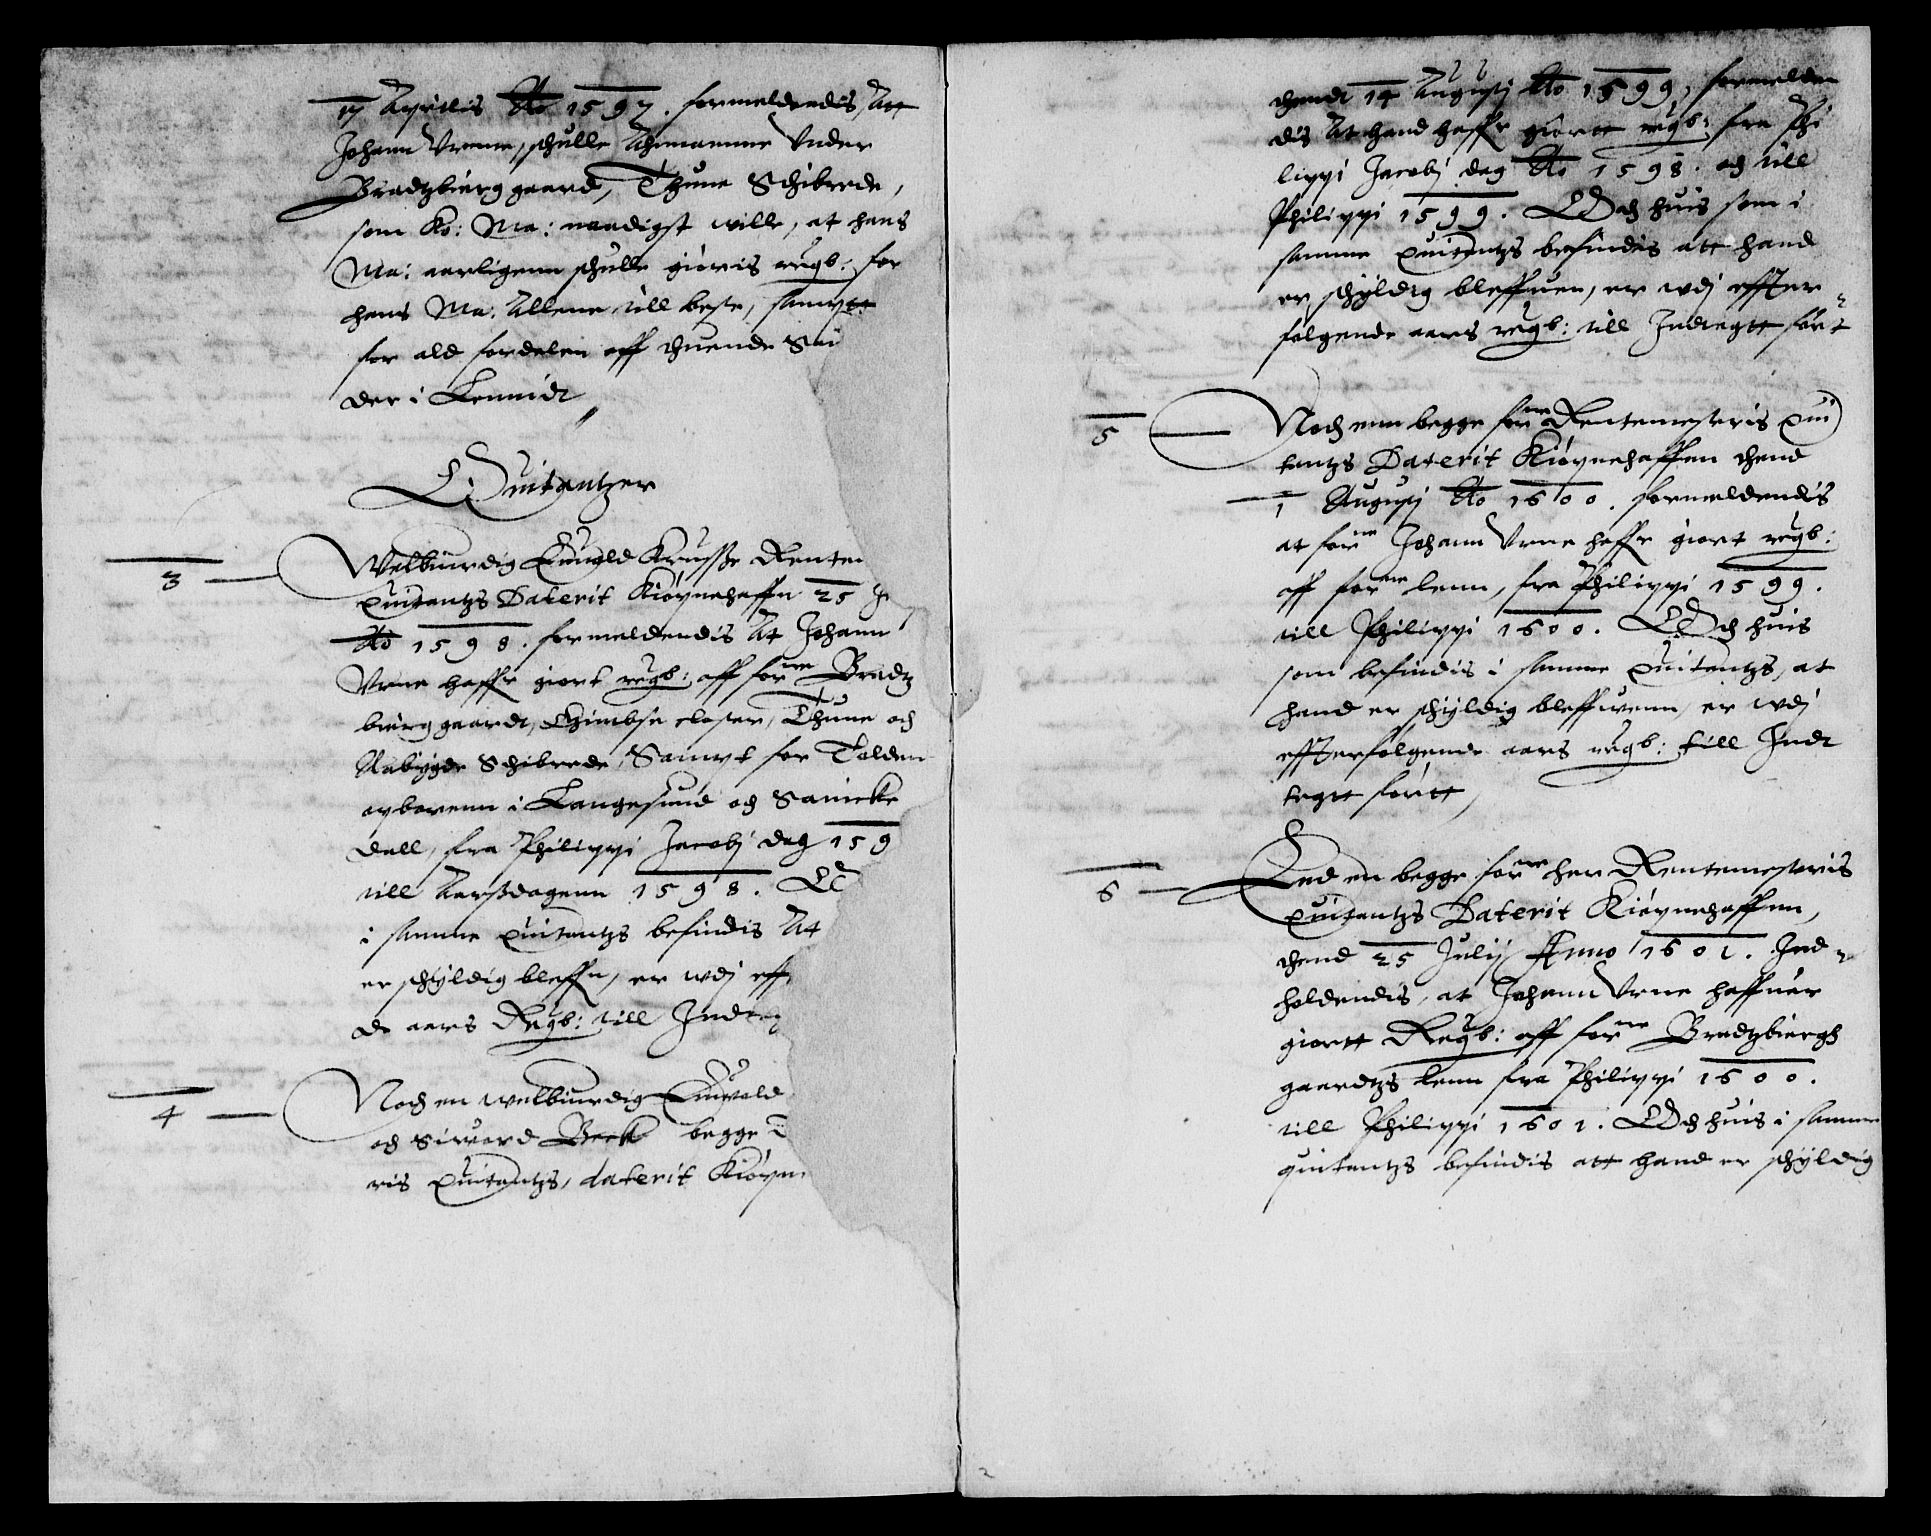 17 Apriilis Ao 1597. formeldendis, Att
Johann Vrnne, schulle Annamme Vnder
Bradtzbierg gaard, Thune Schibrede,
som Ko: Ma: naadigst wille, at hans
Ma: aarligenn schulle giöris regb: for
hans Ma: Allene till beste, sampt
for ald fordelen aff thuende Sÿ
der i Lennidt
Quitantzer
3
Welbiurdig Enuold Krusse Renten
quitantzs Daterit Kiöpnehaffn 25 J
Ao 1598. formeldendis At Johann
Vrne haffr giort regb: aff forne Bradtz
bierg gaardt, Gimbsø closter, Thune och
Nabÿgde Schibrede, Sampt for Tolden
opborenn i Langesund och Sanicke
dall, fra Philippi Jacobj dag 159
till Aarssdagenn 1598. O
i samme quitantzs befindis At
er schÿldig bleffn, er udj eff
de aars Regb: till Indteg
4
Noch en welbiurdig Enuold
och Siuord Beck begge
ris quitantzs, daterit Kiöpn
thend 14 Augustj Ao 1599, formelden
dis At hand haffr giortt regb: fra Phi
lippi Jacobj dag Ao 1598. och till
Philippi 1599. Och huis som i
samme quitantzs befindis att hand
er schÿldig bleffuen, er udj effter
følgende aars regb: till Indtegtt ført
5
Noch enn begge forne Rentemesteris qui
tantzs Daterit Kiöpnehaffen thend
1 Augustj Ao 1600. formeldendis
at forne Johann Vrne haffr giort regb:
aff forne lenn, fra Philippi 1599.
till Philippi 1600. Och huis
som befindis i samme quitantzs, at
hand er schÿldig bleffuenn, er udj
effterfølgende aars regb: till Indt
tegtt førtt,
6
End en begge forne her Rentemesteris
quitantzs Daterit Kiöpnehaffnn,
thend 25 Julij Anno 1601. Ind
holdendis, at Johann Vrne haffuer
giortt Regb: aff forne Bradtzbiergh
gaardtzs lenn fra Philippi 1600.
till Philippi 1601. Och huis i samme
quitantzs befindis att hand er schÿldig